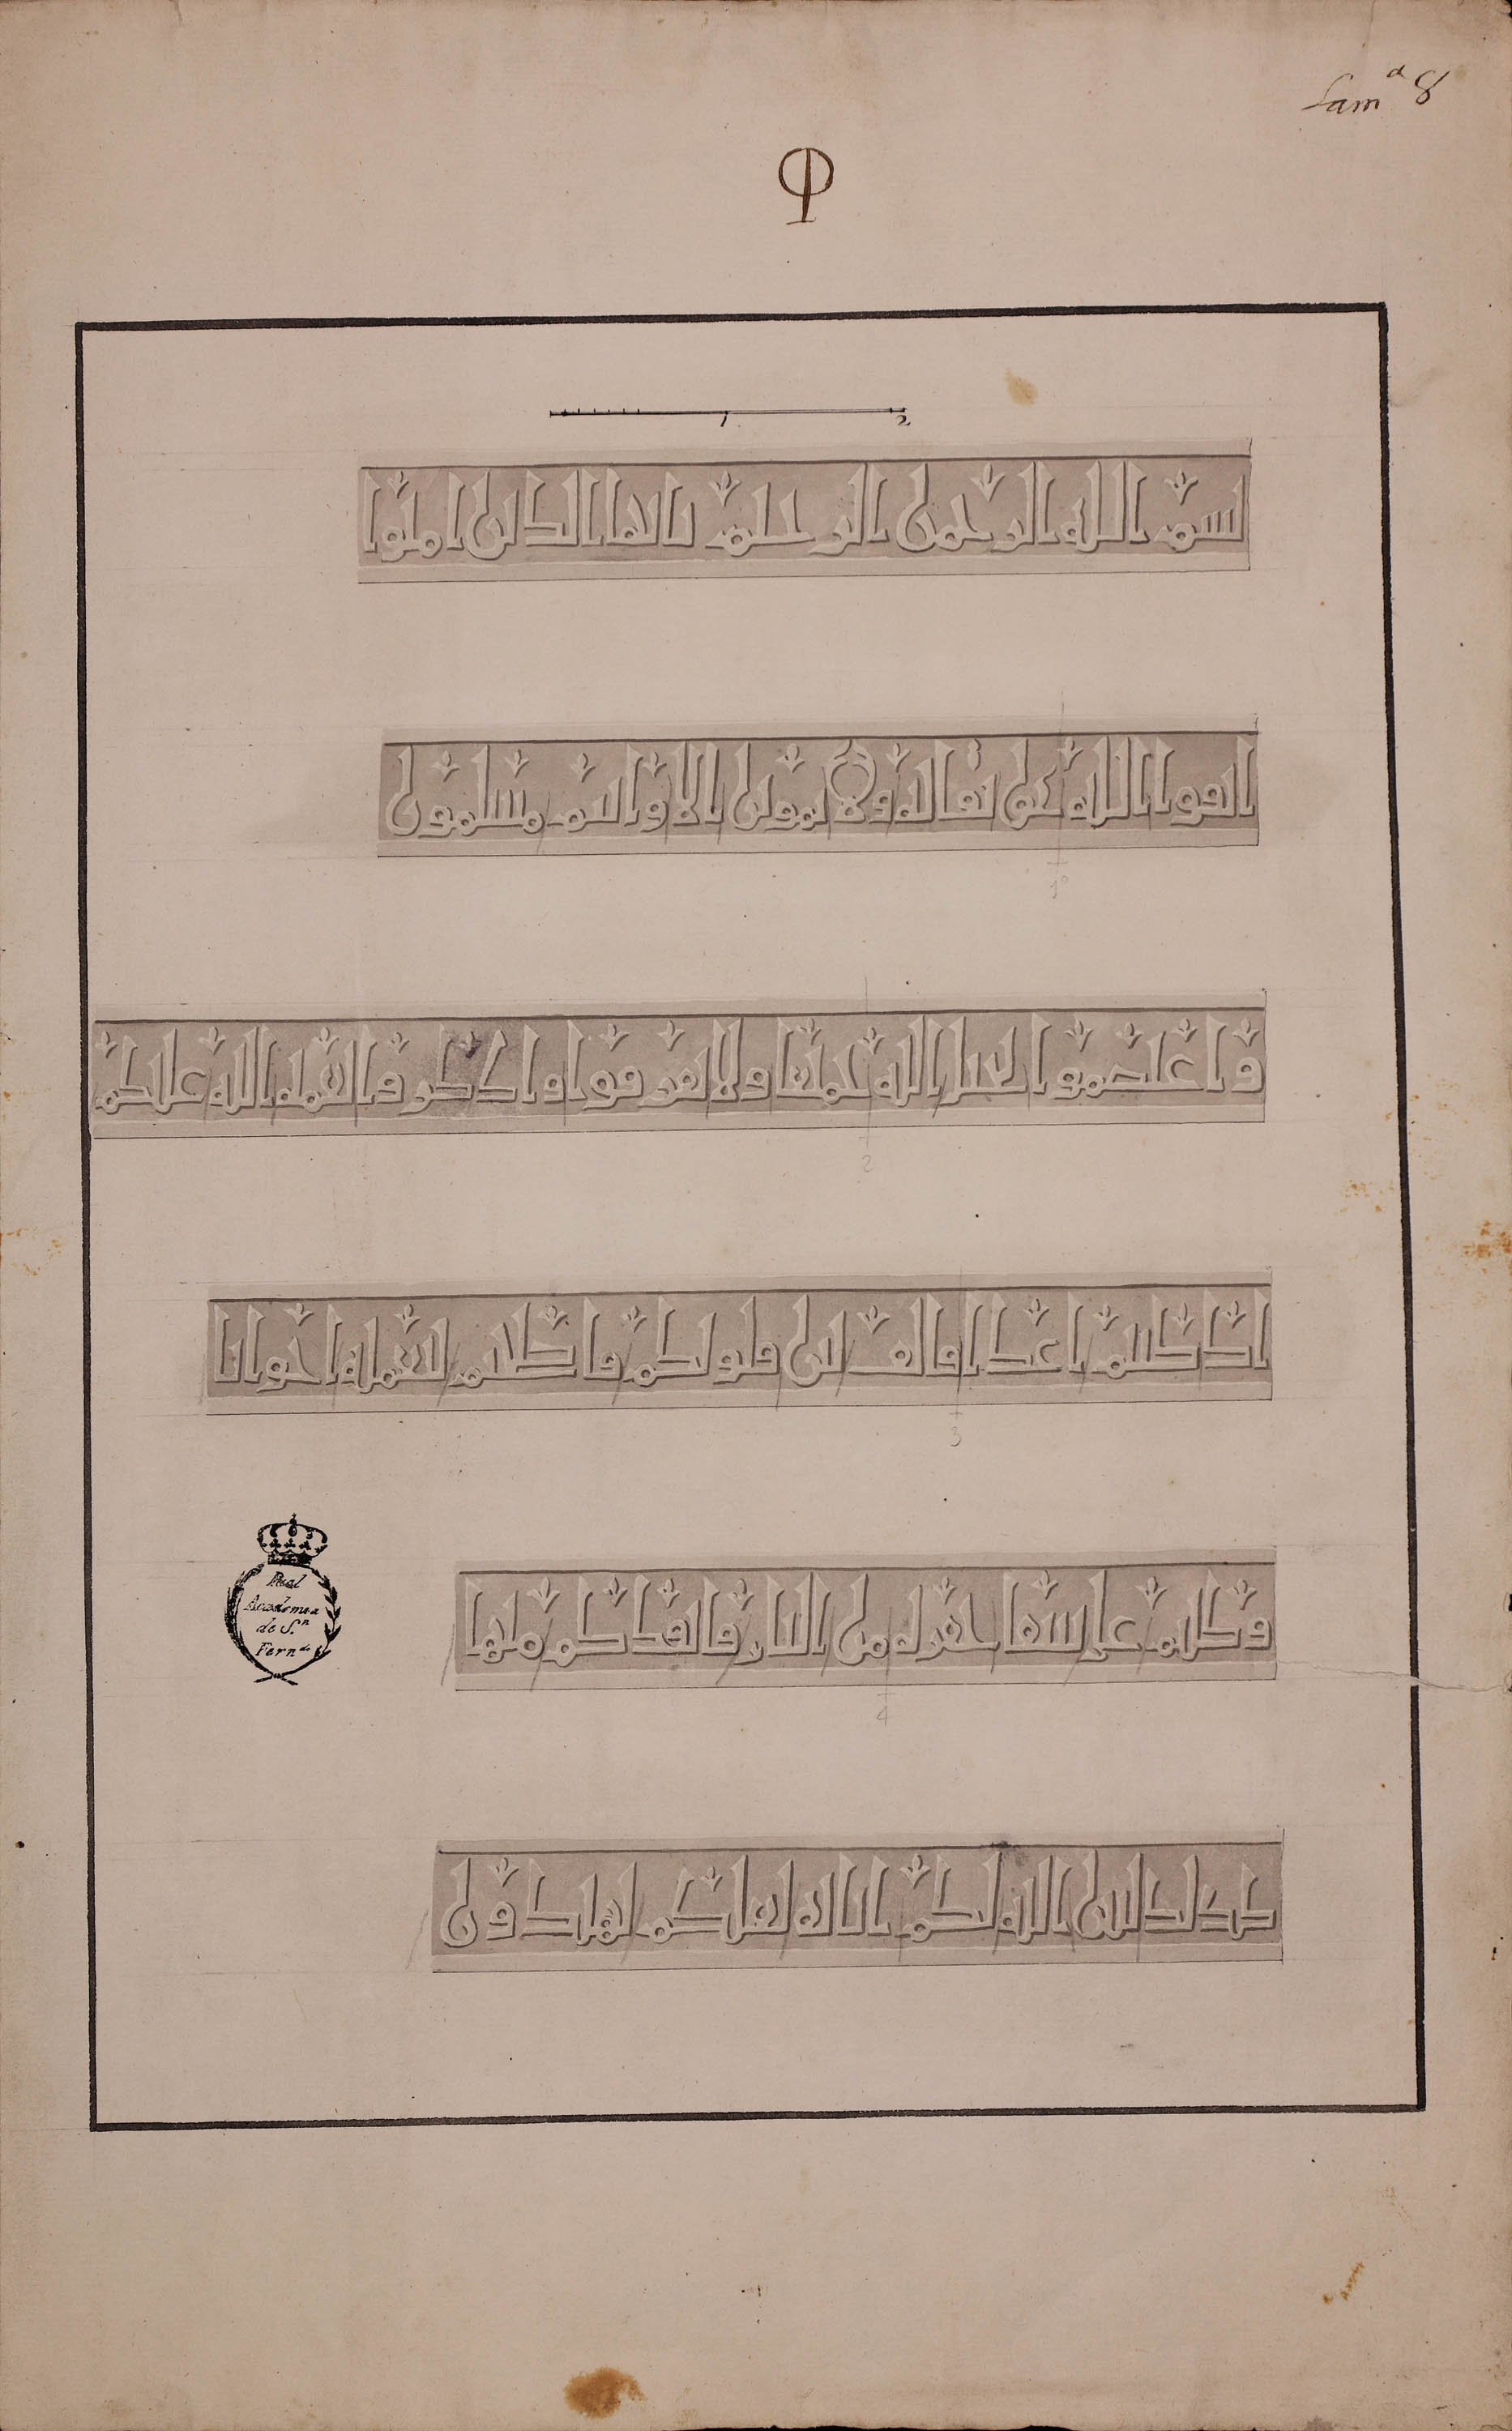 Lamª 8
Φ
1 2
بسم الله الرحمن الرحيم يايها الذين امنوا
اتقوا الله حق تقاته ولا تموتن الا وانتم مسلمون
1º
واعتصموا بحبل الله جميعا ولا تفرقوا واذكروا نعمة الله عليكم
2
اذ كنتم اعدا فالف بين قلوبكم فاصبحتم بنعمته اخوانا
3
وكنتم على شفا حفرة من النار فانقذكم منها
4
Real
Academia
de S.n
Fern.do
كذلك يبين الله لكم اياته لعلكم تهتدون